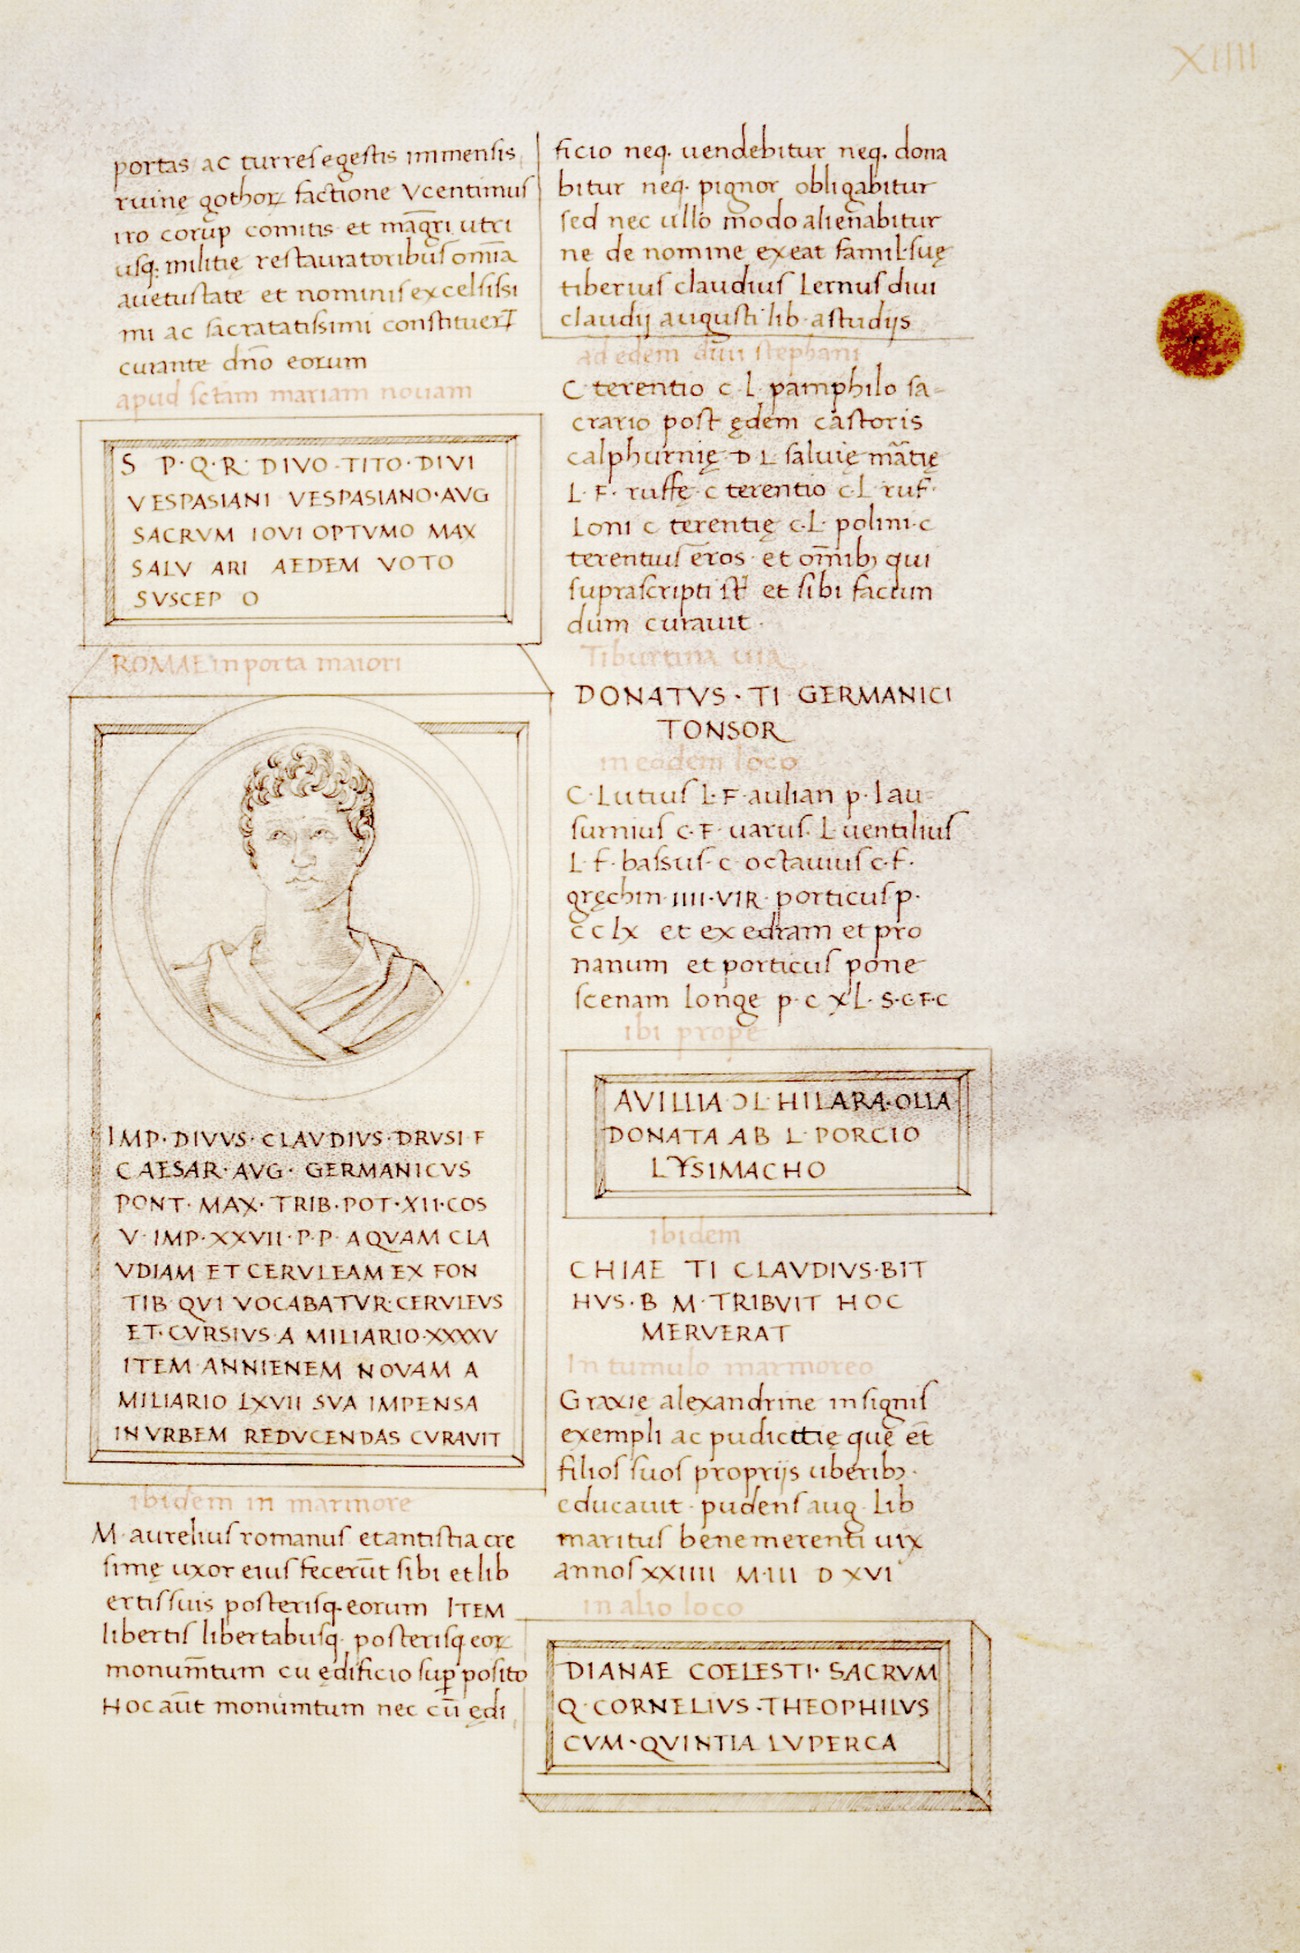 XIIII
portas ac turres egestis immensis
ruinę gothoꝝ factione Vcentimus
iro corup comitis et māgri utri
usq. militie restauratoribus om̄ia
auetustate et nominis excelsissi
mi ac sacratatissimi constituerT̄
curante dn̄o eorum
apud sctam mariam nouam
S P·Q·R DIVO·TITO·DIVI
VESPASIANI VESPASIANO·AVG
SACRVM IOVI OPTVMO MAX
SALV ARI AEDEM VOTO
SVSCEP O
ROMAE in porta maiori
IMP·DIVVS·CLAVDIVS·DRVSI F
CAESAR·AVG·GERMANICVS
PONT·MAX·TRIB·POT·XII·COS
V·IMP·XXVII·P·P·AQVAM CLA
VDIAM ET CERVLEAM EX FON
TIB QVI VOCABATVR·CERVLEVS
ET·CVRSIVS·A MILIARIO·XXXXV
ITEM ANNIENEM NOVAM A
MILIARIO LXVII SVA IMPENSA
IN VRBEM REDVCENDAS CVRAVIT
ibidem in marmore
M·aurelius romanus et antistia cre
simę uxor eius fecerūt sibi et lib
ertis suis posterisq. eorum ITEM
libertis libertabusq. posterisq. eoꝝ
monum̄tum cu ędificio sup posito
Hoc aūt monumtum nec cū ędi
ficio neq. uendebitur neq. dona
bitur neq. pignor obligabitur
sed nec ullo modo alienabitur
ne de nomine exeat famil·suę
tiberius claudius Lernus diui
claudij augusti·lib·astudijs
ad edem diui stephani
C terentio c·L·pamphilo sa-
crario post ędem castoris
calphurnię·D L saluię māt̄ię
L·F·ruffę·c terentio c·L ruf·
Loni c terentię c·L·polini·c
terentius eros·et om̄ibꝫ qui
suprascripti st̄ et sibi faciun
dum curauit·
Tiburtina uia
DONATVS·TI GERMANICI
TONSOR
in eodem loco
C·Lutius L·F·aulian p·lau-
surnius c·F·uarus·L uentilius
L·f·bassus·c octauius c·f·
gręchin·IIII·VIR·porticus p·
cclx et exedram et pro
nanum et porticus pone
scenam longe p·c XL·S·C·F·C
ibi prope
AVILLIA ƆL·HILARA·OLLA
DONATA AB L·PORCIO
LYSIMACHO
ibidem
CHIAE TI CLAVDIVS·BIT
HVS·B M·TRIBVIT HOC
MERVERAT
In tumulo marmoreo
Graxię alexandrine insignis
exempli ac pudicitię que et̄
filios suos proprijs uberibꝫ·
educauit·pudens aug·Lib
maritus bene merenti uix
annos XXIIII M·III D XVI
in alio loco
DIANAE COELESTI·SACRVM
Q·CORNELIVS·THEOPHILVS
CVM·QVINTIA LVPERCA